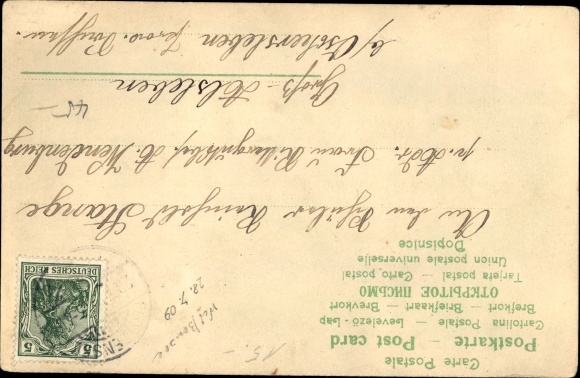 Carte Postale
Postkarte — Post card
Cartolina Postale — Levelező-Lap
Brefkort — Briefkaart — Brevkort
ОТКРЫТОЕ ПИСЬМО
Tarjeta postal — Carto postal
Union postale universelle
Dopisnice
DEUTSCHES REICH
5
15.-
22.7.09
An den Schüler Reinhold Stange
p. Adr. Frau Rittergutsbes. A. Wendenburg
45-
Groß-Alsleben
b/Oschersleben Prov. Preußen.